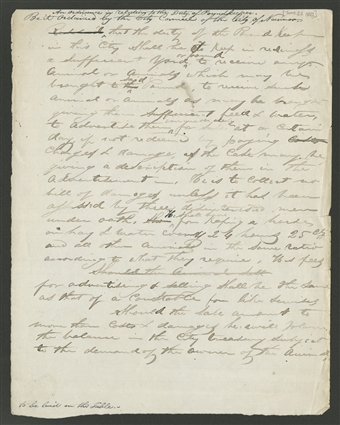 An ordinance in relation to the Duty of Pound Keeper
Be it ordained by the City Council of the City of Nauvoo
that the duty of the Pound Keeper
in this City shall be to Keep in readiness
a sufficient Yard to receive any
Animal or Animals which may be
brought to and to receive such
animal or animals as may be brought
giving them sufficient feed & water,
to Advertise them for Sale at a certain
day if not redeemed by paying
charges & damage, if the Case may be
giving a description of them in the
Advertisement. He is to Collect no
bill of damages unless it had been
by three disinterested men
under oath, for Keeping a horse
on hay & water 24 hours 25 Cts
and all other Animals in the same ratio
according to what they require, His fees
Should the Animal sell
for advertising & selling shall be the same
as that of a Constable for like services
Should the sale amount to
more than Costs & damages he will
the balance in the City treasury subject
to the demand of the owner of the Animal
to be laid on the table